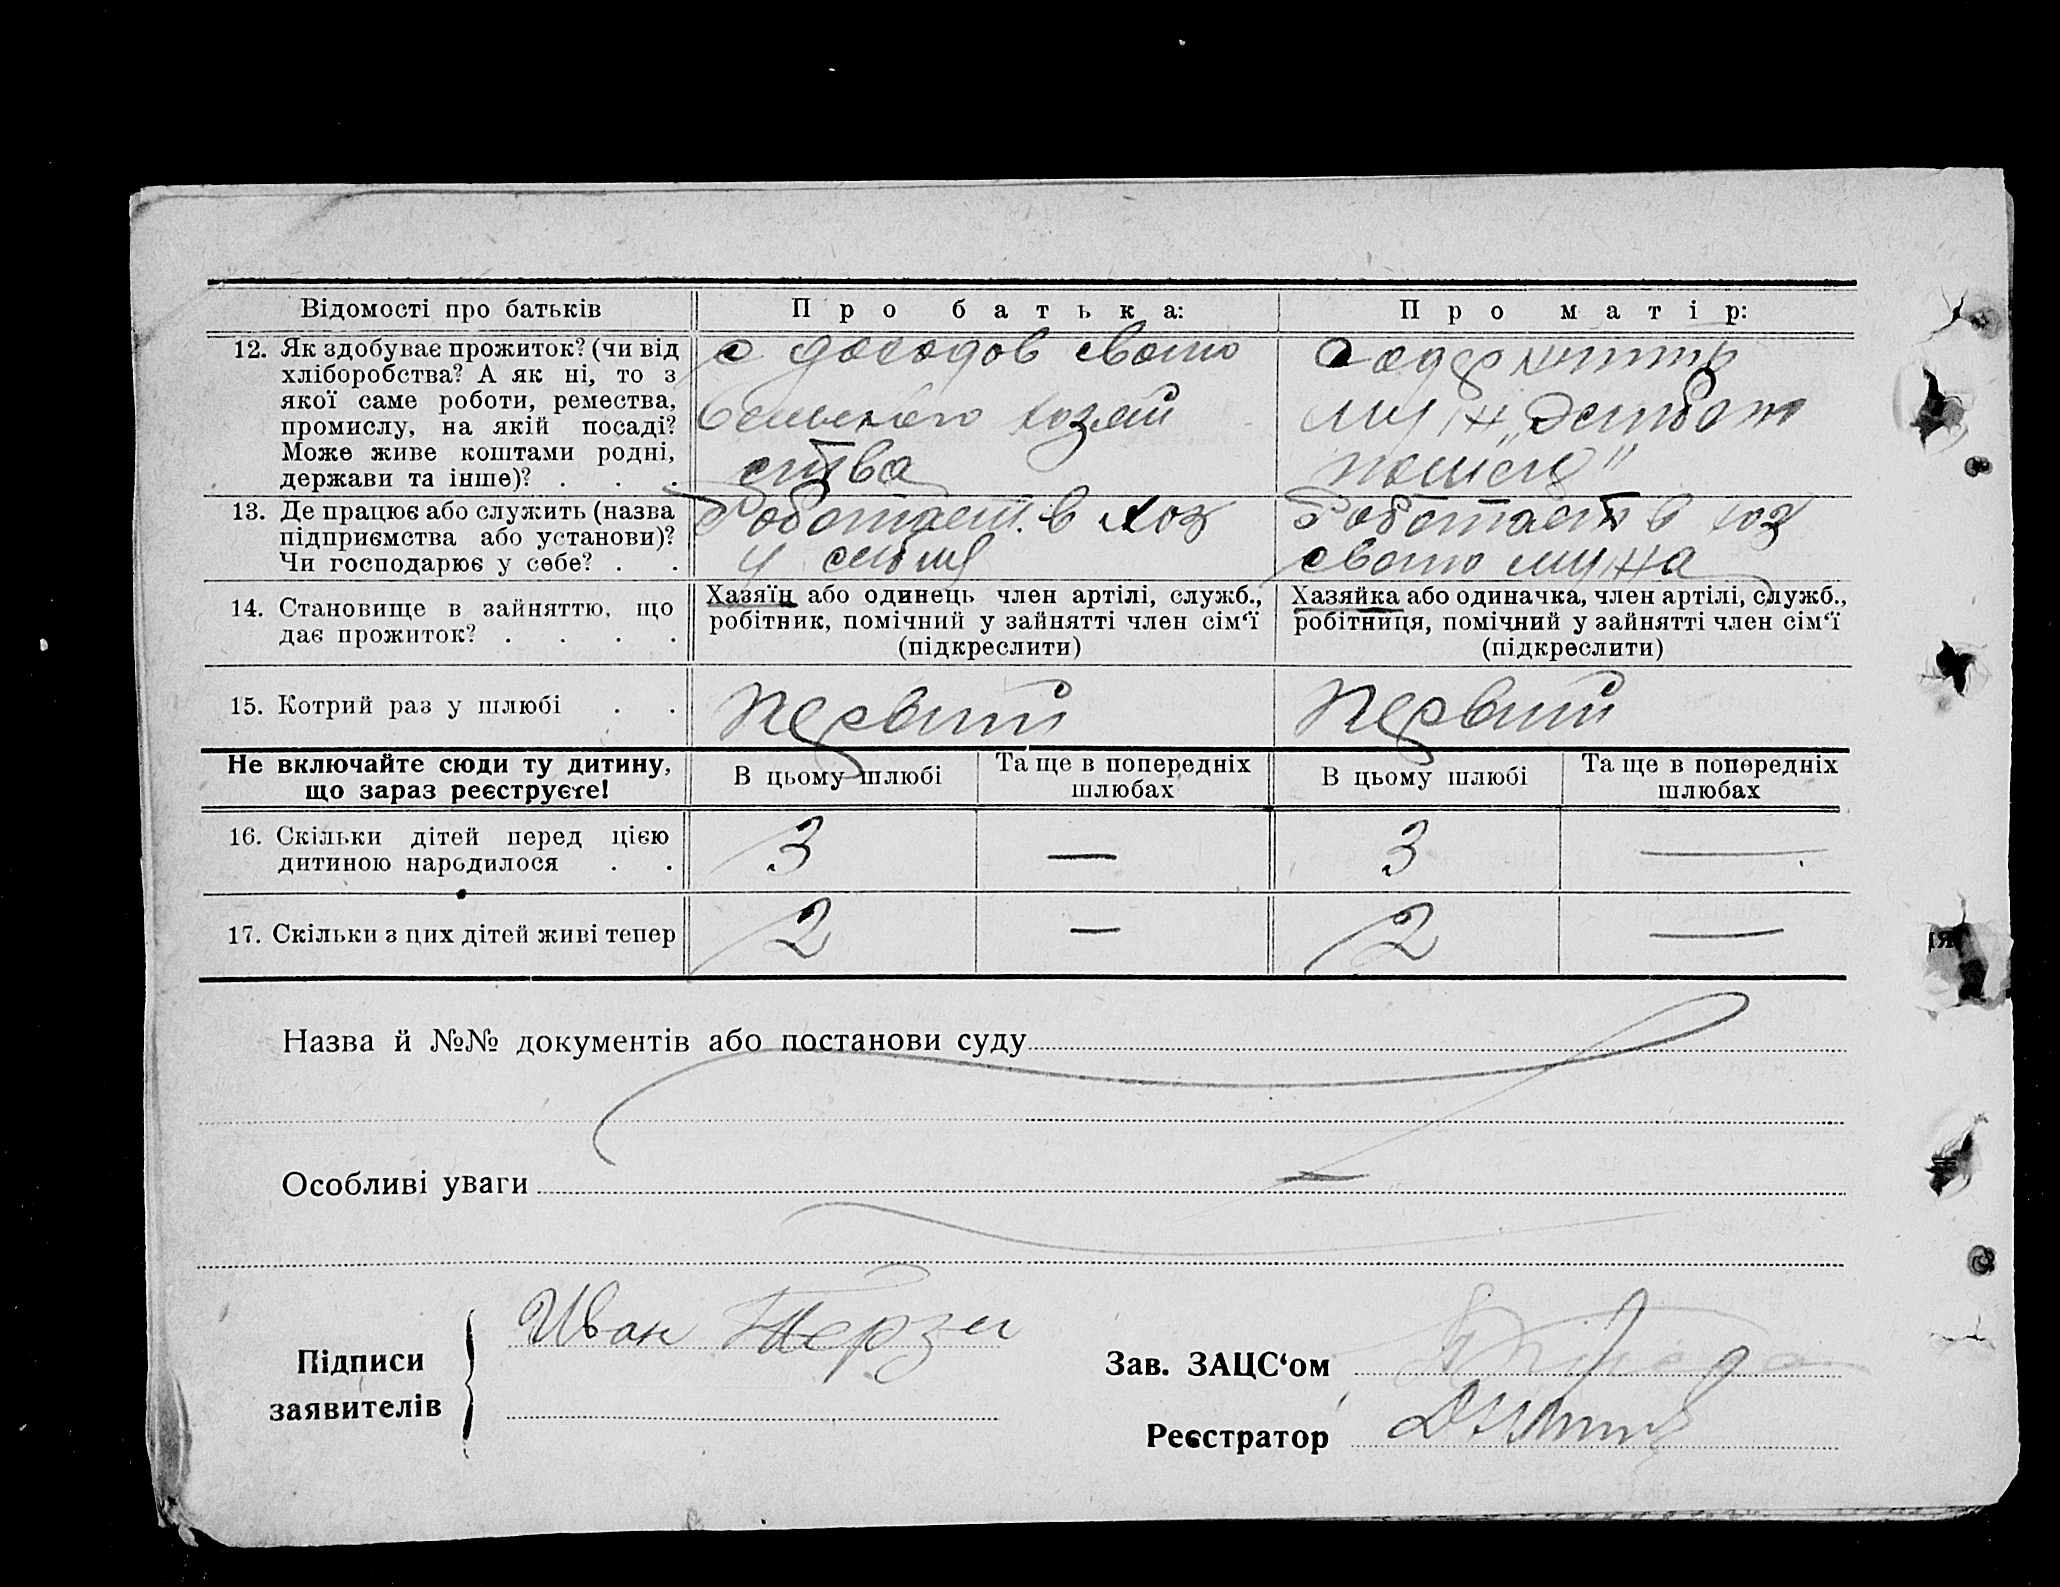 Відомості про батьків
Про батька:
Про матір:
12. Як здобуває прожиток? (чи від
хліборобства? А як ні, то з
якої саме роботи, ремества,
промислу, на якій посаді?
Може живе коштами родні,
держави та інше)? . . .
с доходов своего
сельского хозяй
ства
содержить
муж
13. Де працює або служить (назва
підприємства або установи)?
Чи господарює у себе? . .
Работает в хоз
у семьи
Работает в хоз
своего мужа
14. Становище в зайняттю, що
дає прожиток? . . . .
Хазяїн або одинець член артілі, служб.,
робітник, помічний у зайнятті член сім‘ї
(підкреслити)
Хазяйка або одиначка, член артілі, служб.,
робітниця, помічний у зайнятті член сім‘ї
(підкреслити)
15. Котрий раз у шлюбі . .
первий
первий
Не включайте сюди ту дитину,
що зараз реєструєте!
В цьому шлюбі
Та ще в попередніх
шлюбах
В цьому шлюбі
Та ще в попередніх
шлюбах
16. Скільки дітей перед цією
дитиною народилося . .
3 — 3 —
17. Скільки з цих дітей живі тепер
2 — 2 —
Назва й №№ документів або постанови суду
Особливі уваги —
Підписи
заявителів
Иван Терзи
Зав. ЗАЦС‘ом
Реєстратор